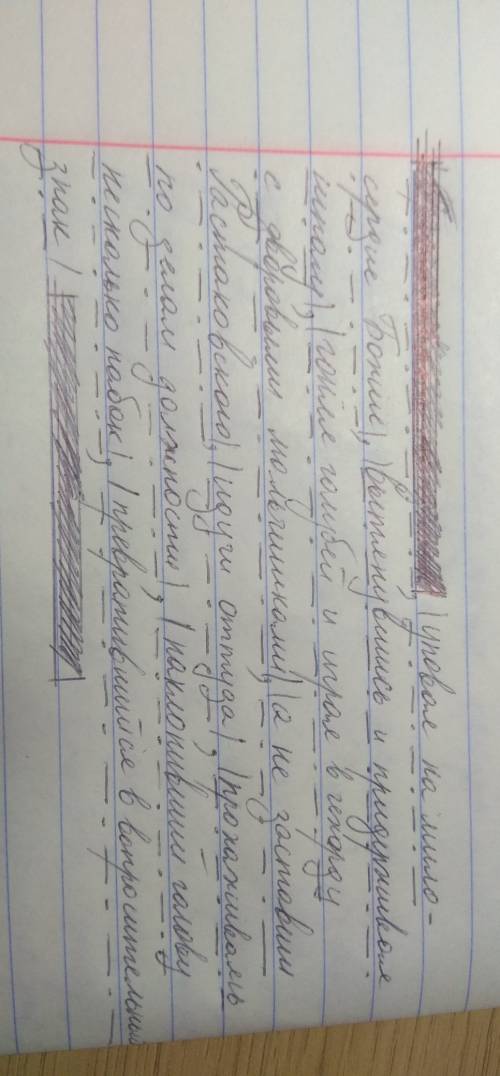 |уповая на мило-
сердие Божие|, |вытянувшись и придерживая
шпагу|, |гоняя голубей и играя в чехарду
с дворовыми мальчишками|, |а не заставши
Растаковского|, |идучи оттуда|, |прохаживаясь
по делам должности|, |наклонивши голову
несколько набок|, |превратившийся в вопросительный
знак|